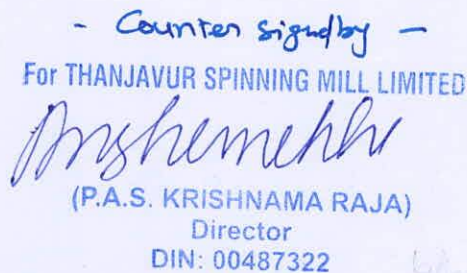 - Counter signed by -
For THANJAVUR SPINNING MILL LIMITED
(P.A.S. KRISHNAMA RAJA)
Director
DIN: 00487322